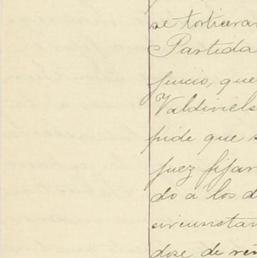 se torticera
Partida
juicio, que
Valdiviels
pide que s
juez fijar
do a los d
circunstan
dose de